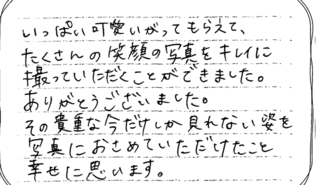 いっぱい可愛いがってもらえて、
たくさんの笑顔の写真をキレイに
撮っていただくことができました。
ありがとうございました。
その貴重な今だけしか見れない姿を
写真におさめていただけたこと
幸せに思います。